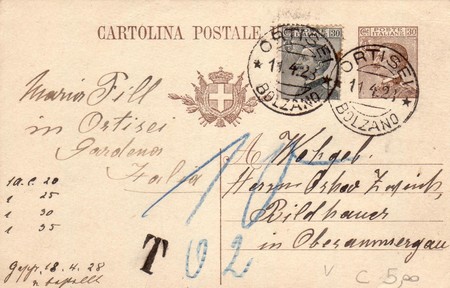 CARTOLINA POSTALE
CENT. 30
CENT. 30
ORTISEI
11.4.23
BOLZANO
ORTISEI
11.4.23
BOLZANO
Maria Fill
in Ortisei
Gardena
Italia
A.
Herrn Oskar
Bildhauer
in Oberammergau
10
T 02
1a. C. 20
1 25
1 30
1 35
18.4.28
C 5,00